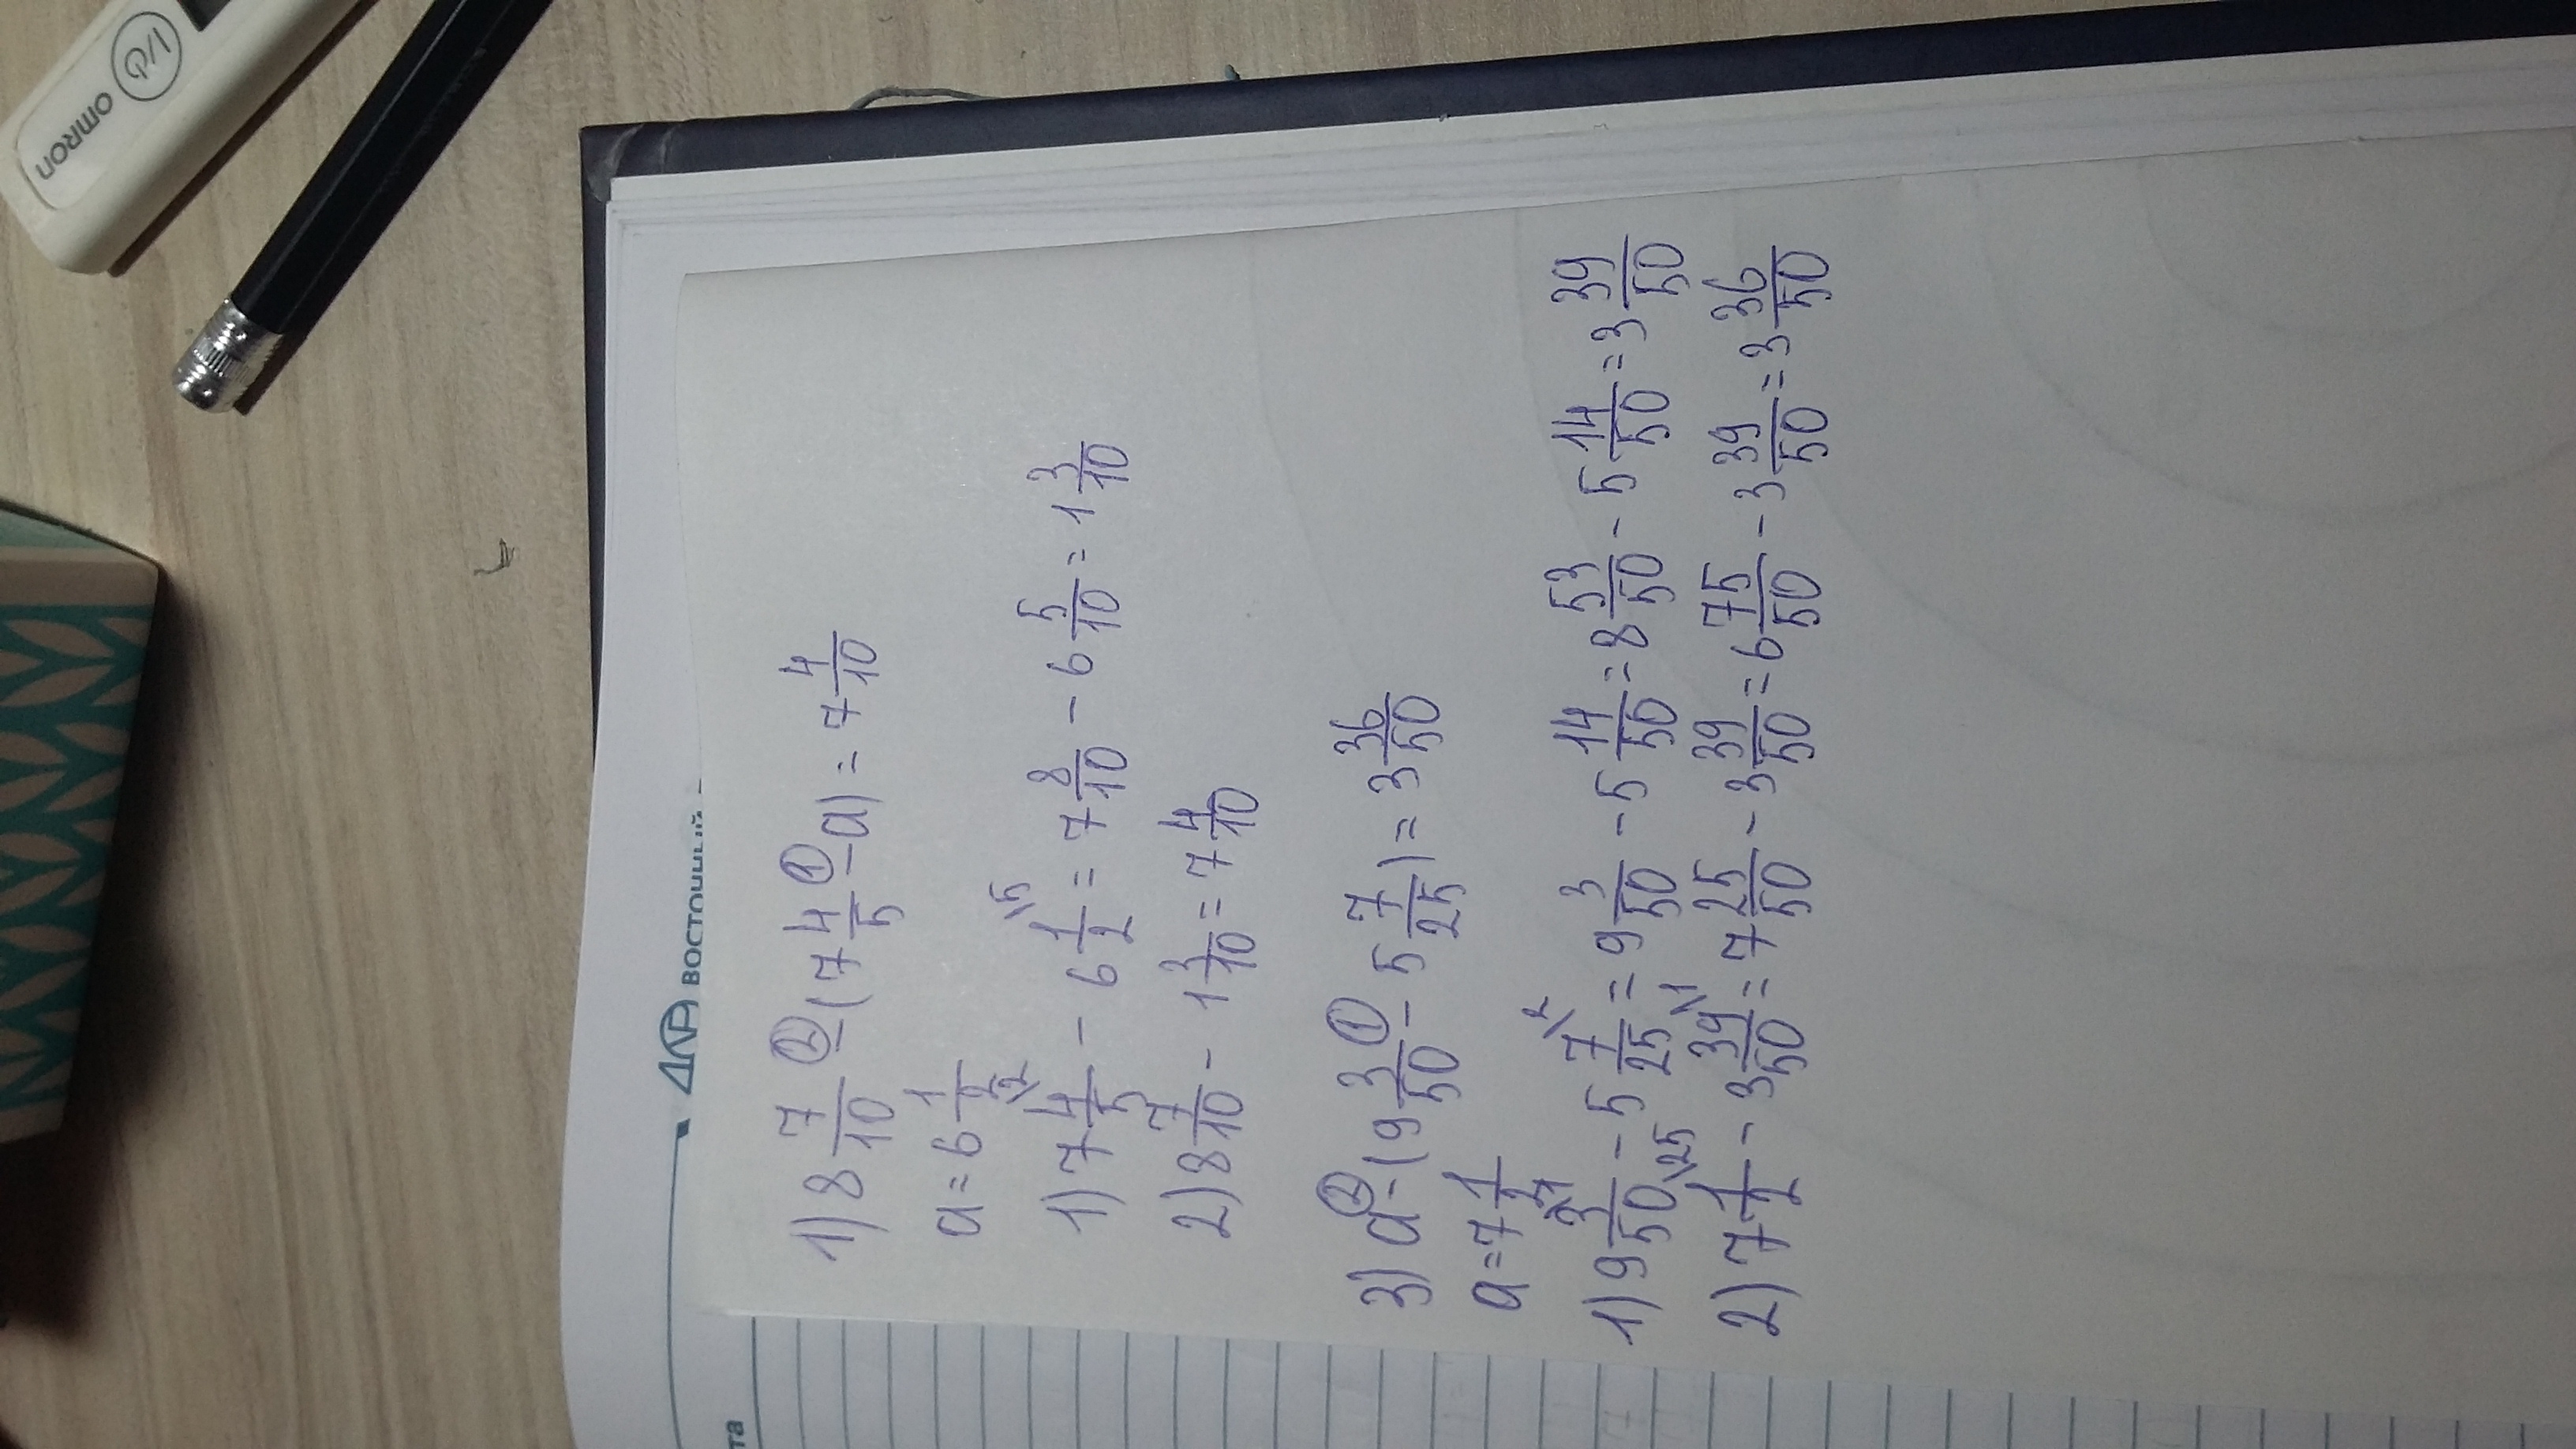 OMRON
I/⏻
ДЛР ВОСТОЧНЫЙ
та
1) 8 7/10 ② - (7 4/5 ① - a) = 7 4/10
a = 6 1/2
1) 7 4/5 \2 - 6 1/2 \5 = 7 8/10 - 6 5/10 = 1 3/10
2) 8 7/10 - 1 3/10 = 7 4/10
3) a ② - (9 3/50 ① - 5 7/25) = 3 36/50
a = 7 1/2
1) 9 3/50 \1 - 5 7/25 \2 = 9 3/50 - 5 14/50 = 8 53/50 - 5 14/50 = 3 39/50
2) 7 1/2 \25 - 3 39/50 \1 = 7 25/50 - 3 39/50 = 6 75/50 - 3 39/50 = 3 36/50